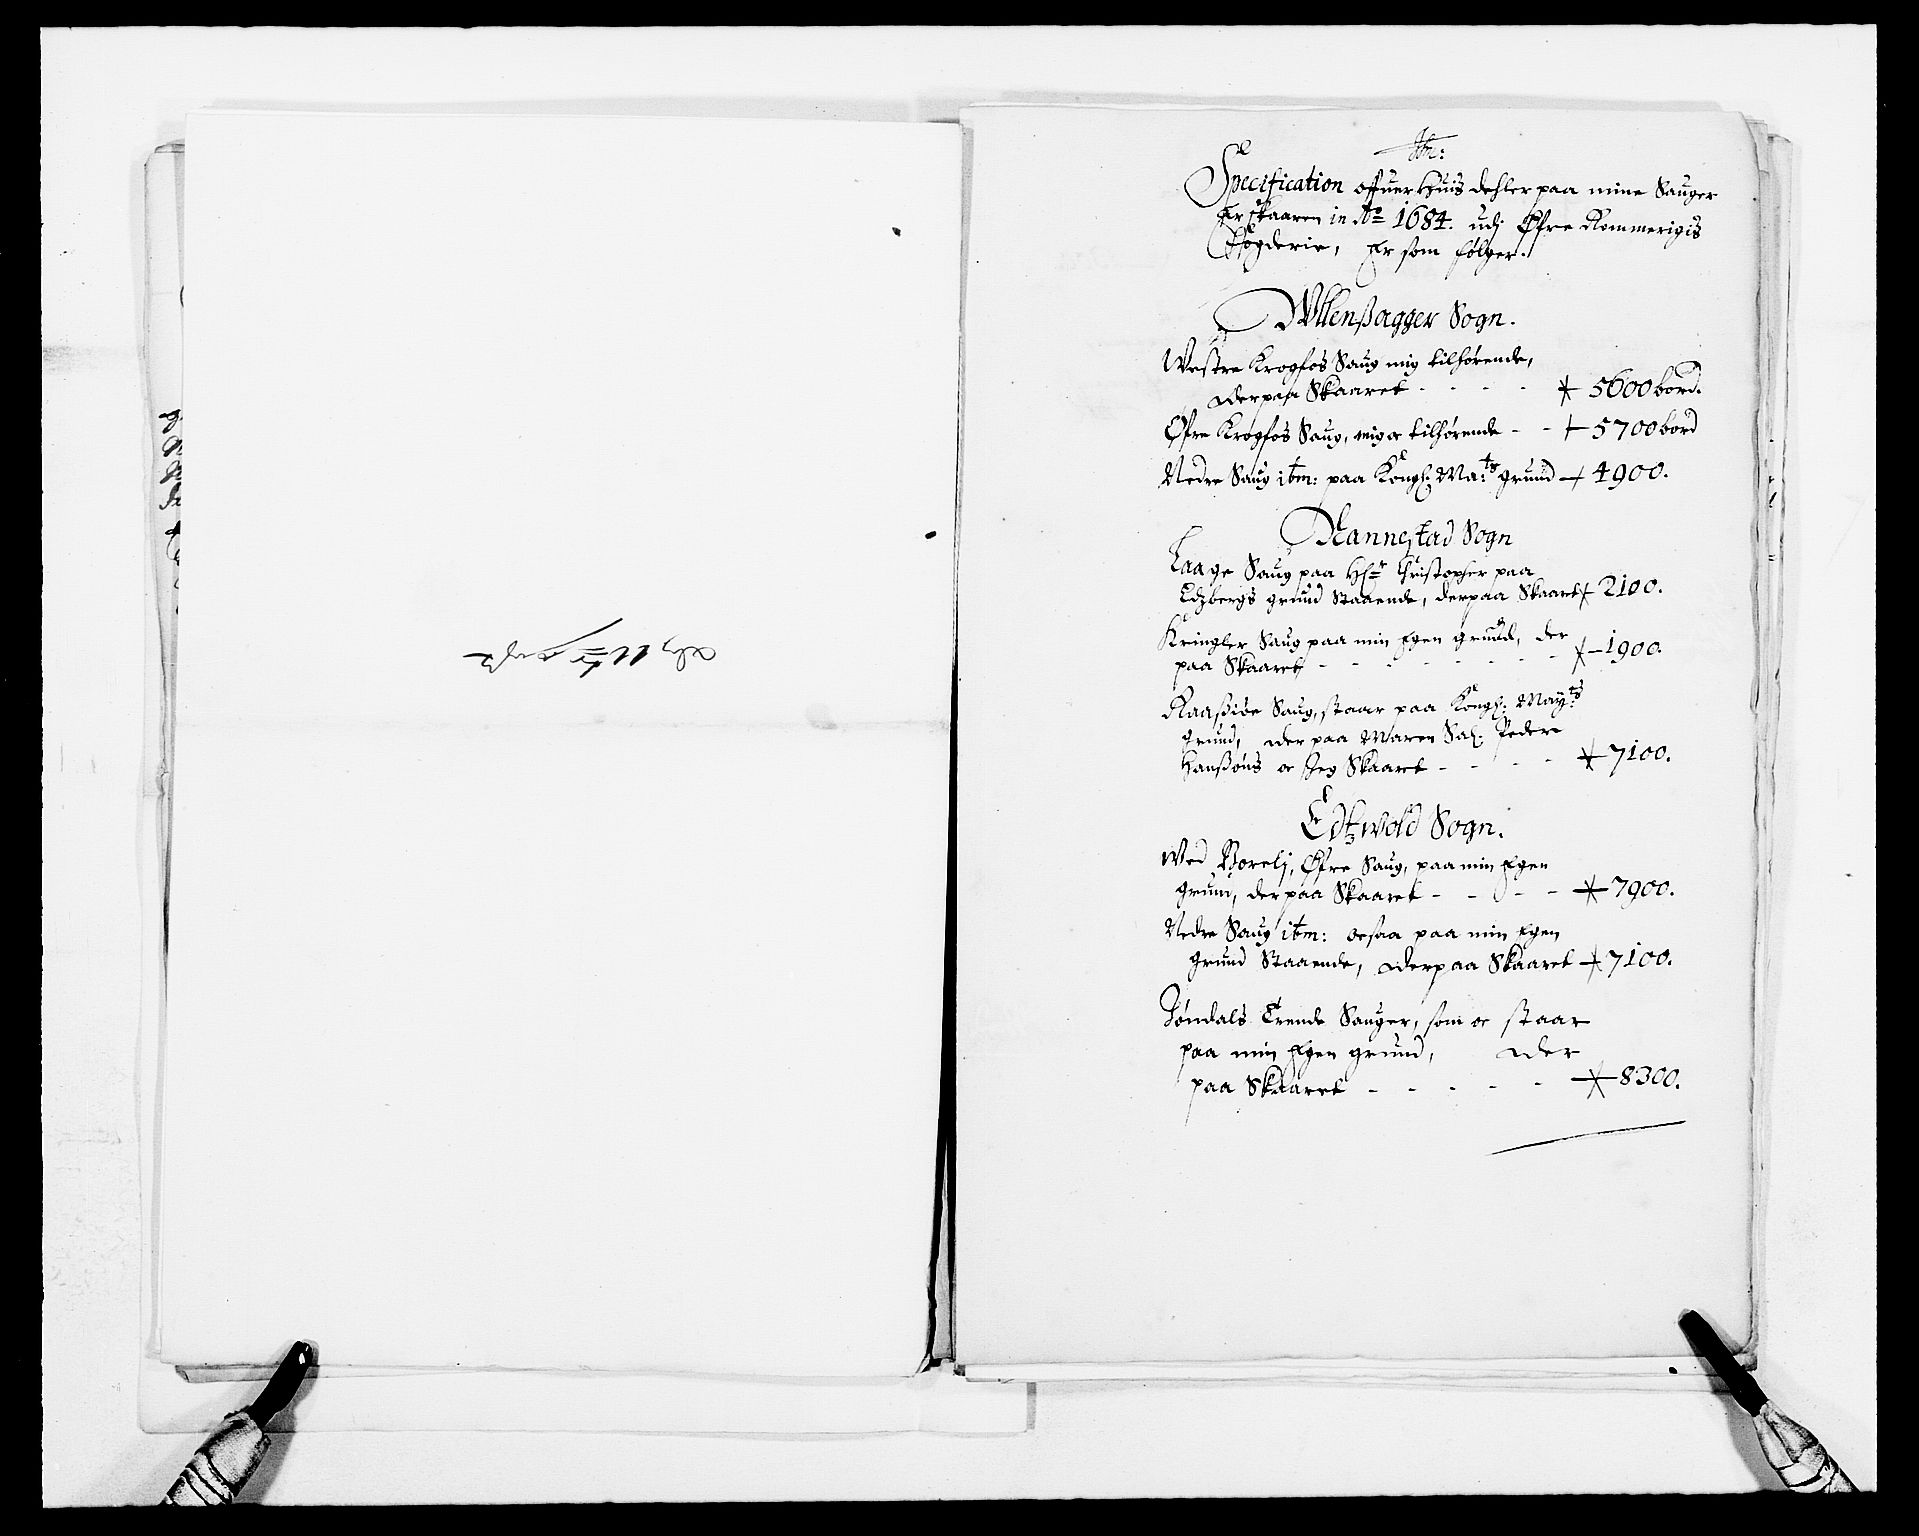 Itm:
Specification offuer Huis dehler paa mine Sauger
Er skaaren in Ao 1684. udj Øfre Rommerigis
Fogderie, Er som følger.
Wllenßagger Sogn.
Westre Krogfos Saug mig tilhørende,
derpaa Skaaret - - - - 5600 bord.
Øfre Krogfos Saug, mig oc tilhørende - - 5700 bord
Nedre Saug itm: paa Kongl: Ma:ts grund 4900.
Nannestad Sogn
Laage Saug paa Hr Christopher paa
Edzbergs grund Staaende, derpaa Skaaret 2100.
Kringler Saug paa min Egen grund, der
paa Skaaret - - - - - - - 1900.
Raaßiøe Saug, staar paa Kongl: May:ts
grund, der paa Maren Sal: Peder
Hanßøns oc Jeg Skaaret - - - - 7100.
Edtzwold Sogn.
Wed Borelj, Øfre Saug, paa min Egen
grund, der paa Skaaret - - - - 7900.
Nedre Saug itm: ocsaa paa min Egen
grund Staaende, derpaa Skaaret 7100.
Jøndals Trende Sauger, som oc staar
paa min Egen grund, der
paa Skaaret - - - - - 8300.